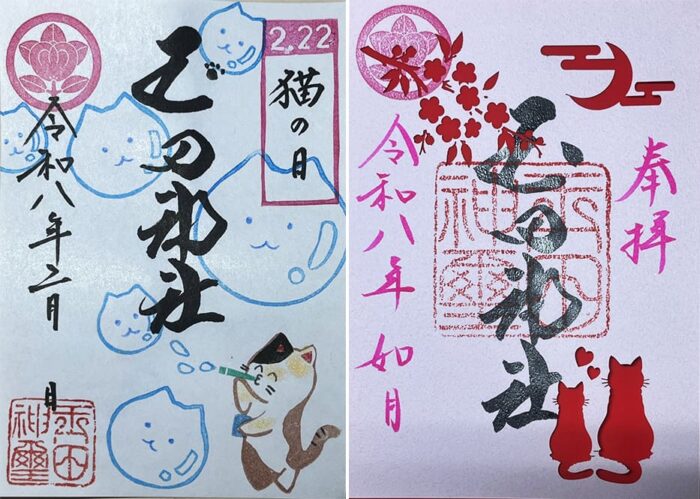 2.22
猫の日
玉田神社
令和八年二月 日
玉田
神璽
奉拝
玉田神社
玉田
神璽
令和八年 如月